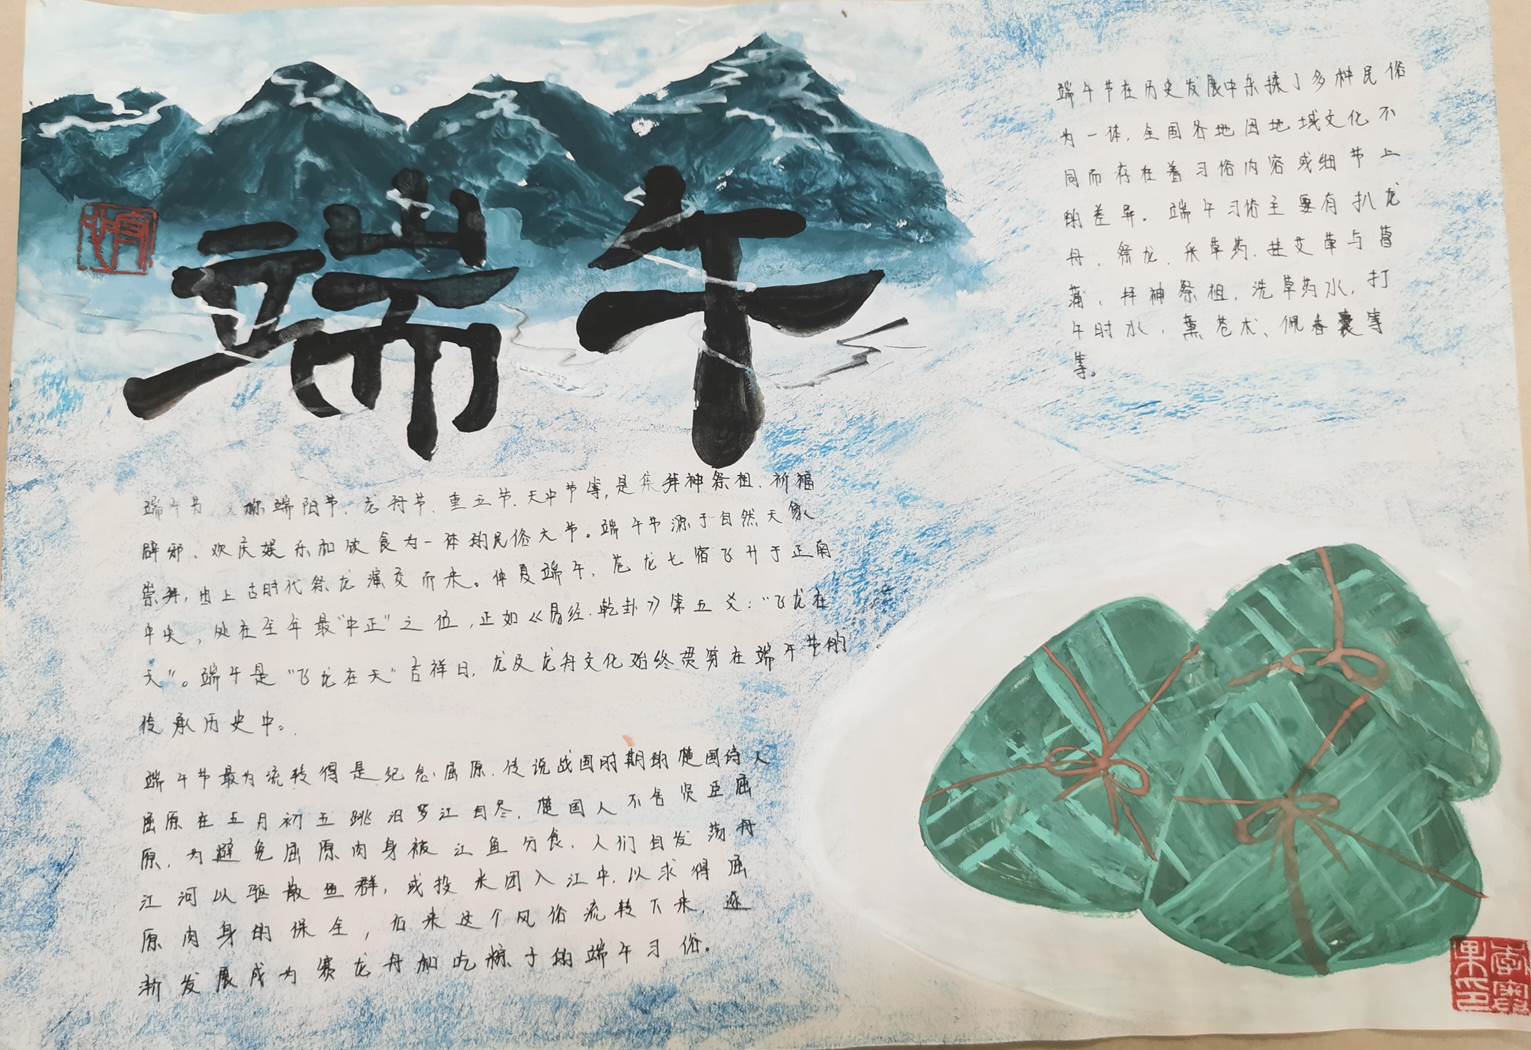 端午
端午节,又称端阳节、龙舟节、重五节、天中节等,是集拜神祭祖、祈福
辟邪、欢庆娱乐和饮食为一体的民俗大节。端午节源于自然天象
崇拜,由上古时代祭龙演变而来。仲夏端午,苍龙七宿飞升于正南
中央,处在全年最“中正”之位,正如《易经·乾卦》第五爻:“飞龙在
天”。端午是“飞龙在天”吉祥日,龙及龙舟文化始终贯穿在端午节的
传承历史中。
端午节最为流转得是纪念屈原,传说战国时期的楚国诗人
屈原在五月初五跳汨罗江自尽,楚国人不舍贤臣屈
原,为避免屈原肉身被江鱼分食,人们自发荡舟
江河以驱散鱼群,或投米团入江中,以求得屈
原肉身的保全,后来这个风俗流转下来,逐
渐发展成为赛龙舟和吃粽子的端午习俗。
端午节在历史发展中杂揉了多种民俗
为一体,全国各地因地域文化不
同而存在着习俗内容或细节上
的差异。端午习俗主要有扒龙
舟、祭龙、采草药、挂艾草与菖
蒲、拜神祭祖、洗草药水、打
午时水、熏苍术、佩香囊等
等。